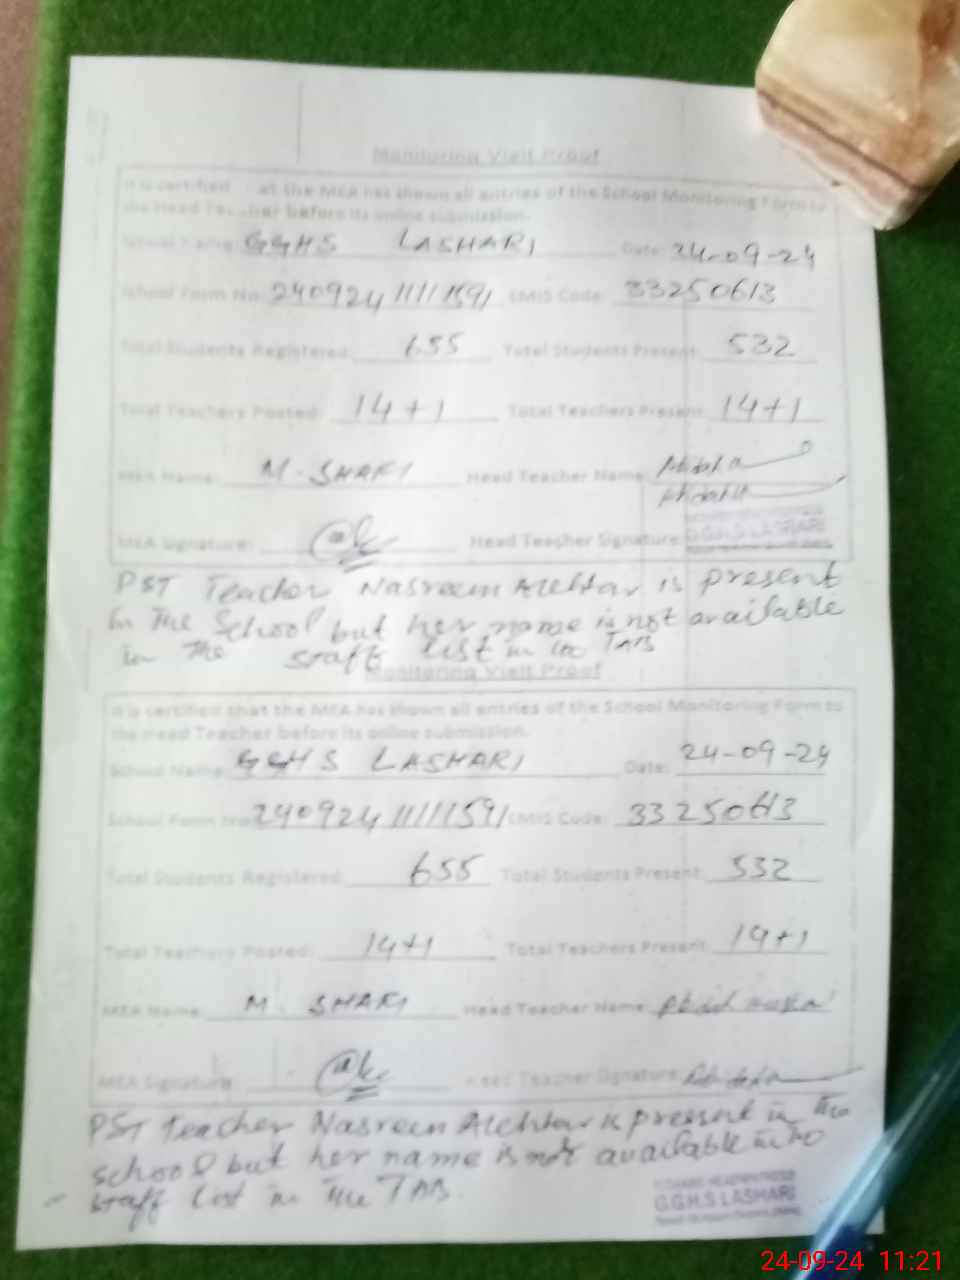 Monitoring Visit Proof
It is certified at the MEA has shown all entries of the School Monitoring Form to
the Head Teacher before its online submission.
School Name: GGHS LASHARI Date: 24-09-24
School Form No: 24092411111591 EMIS Code: 33250613
Total Students Registered: 655 Total Students Present: 532
Total Teachers Posted: 14+1 Total Teachers Present: 14+1
MEA Name: M. SHAFI Head Teacher Name:
MEA Signature: Head Teacher Signature:
G.G.H.S LASHARI
PST Teacher Nasreen Akhtar is present
in the School but her name is not available
in the staff list in the TAB
Monitoring Visit Proof
It is certified that the MEA has shown all entries of the School Monitoring Form to
the Head Teacher before its online submission.
School Name: GGHS LASHARI Date: 24-09-24
School Form No: 24092411111591 EMIS Code: 33250613
Total Students Registered: 655 Total Students Present: 532
Total Teachers Posted: 14+1 Total Teachers Present: 14+1
MEA Name: M. SHAFI Head Teacher Name:
MEA Signature: Head Teacher Signature:
PST Teacher Nasreen Akhtar is present in the
school but her name is not available in the
staff list in the TAB.
G.G.H.S LASHARI
24-09-24 11:21